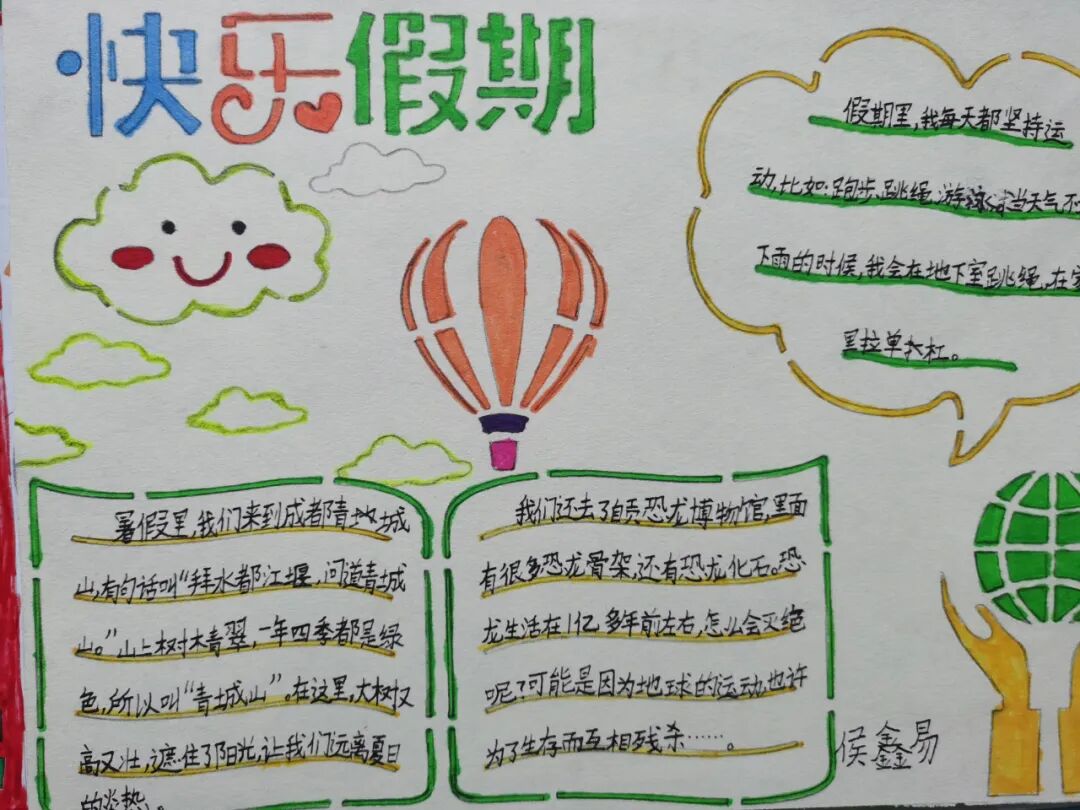 快乐假期
假期里,我每天都坚持运
动,比如:跑步、跳绳、游泳。当天气不
下雨的时候,我会在地下室跳绳,在家
里拉单杠。
暑假里,我们来到成都青城
山,有句话叫“拜水都江堰,问道青城
山。”山上树木青翠,一年四季都是绿
色,所以叫“青城山”。在这里,大树又
高又壮,遮住了阳光,让我们远离夏日
的炎热。
我们还去了自贡恐龙博物馆,里面
有很多恐龙骨架,还有恐龙化石。恐
龙生活在1亿多年前左右,怎么会灭绝
呢?可能是因为地球的运动,也许
为了生存而互相残杀……。
侯鑫易